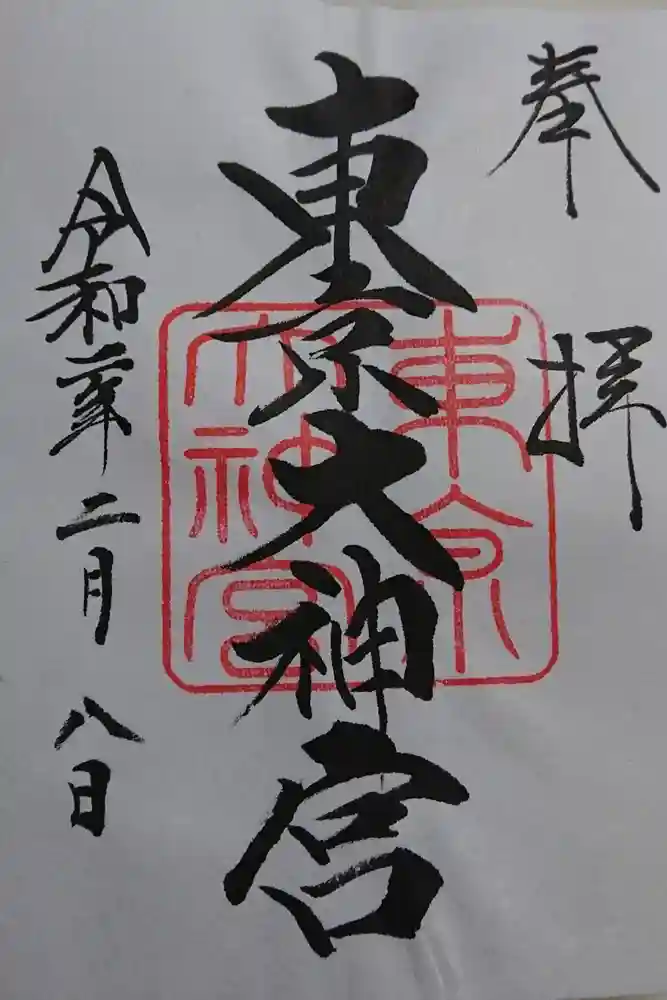 奉拝
東京大神宮
東京
大神宮
令和二年二月八日